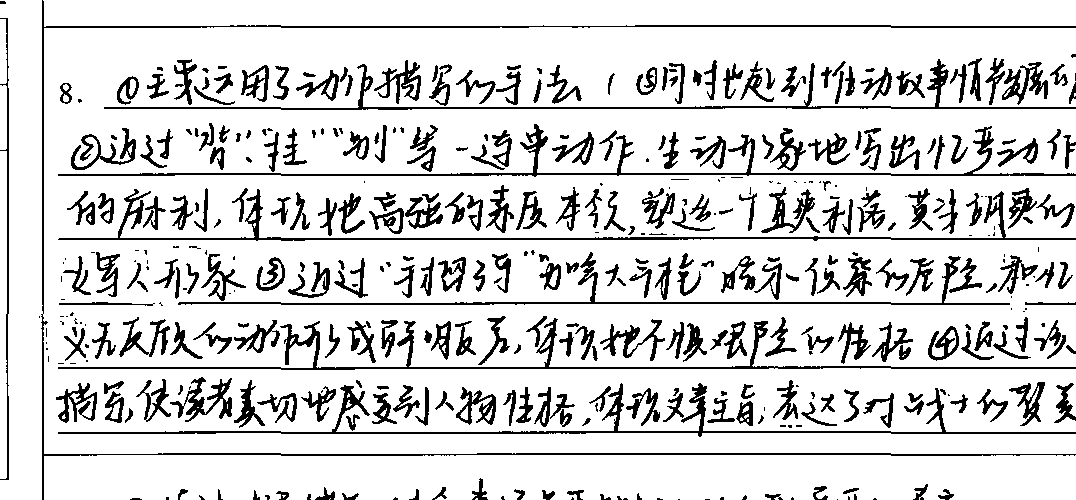 8. ①主要运用了动作描写的手法（⑤同时也起到推动故事情节发展的
②通过“背”“挂”“别”等一连串动作.生动形象地写出忆秀动作
的麻利,体现她高强的素质本领,塑造一个直爽利落,英姿飒爽的
女军人形象③通过“手榴弹”“勃朗大手枪”暗示侦察的危险,和忆
义无反顾的动作形成鲜明反差,体现她不惧艰险的性格④通过该
描写,使读者真切地感受到人物性格,体现文章主旨,表达了对战士的赞美